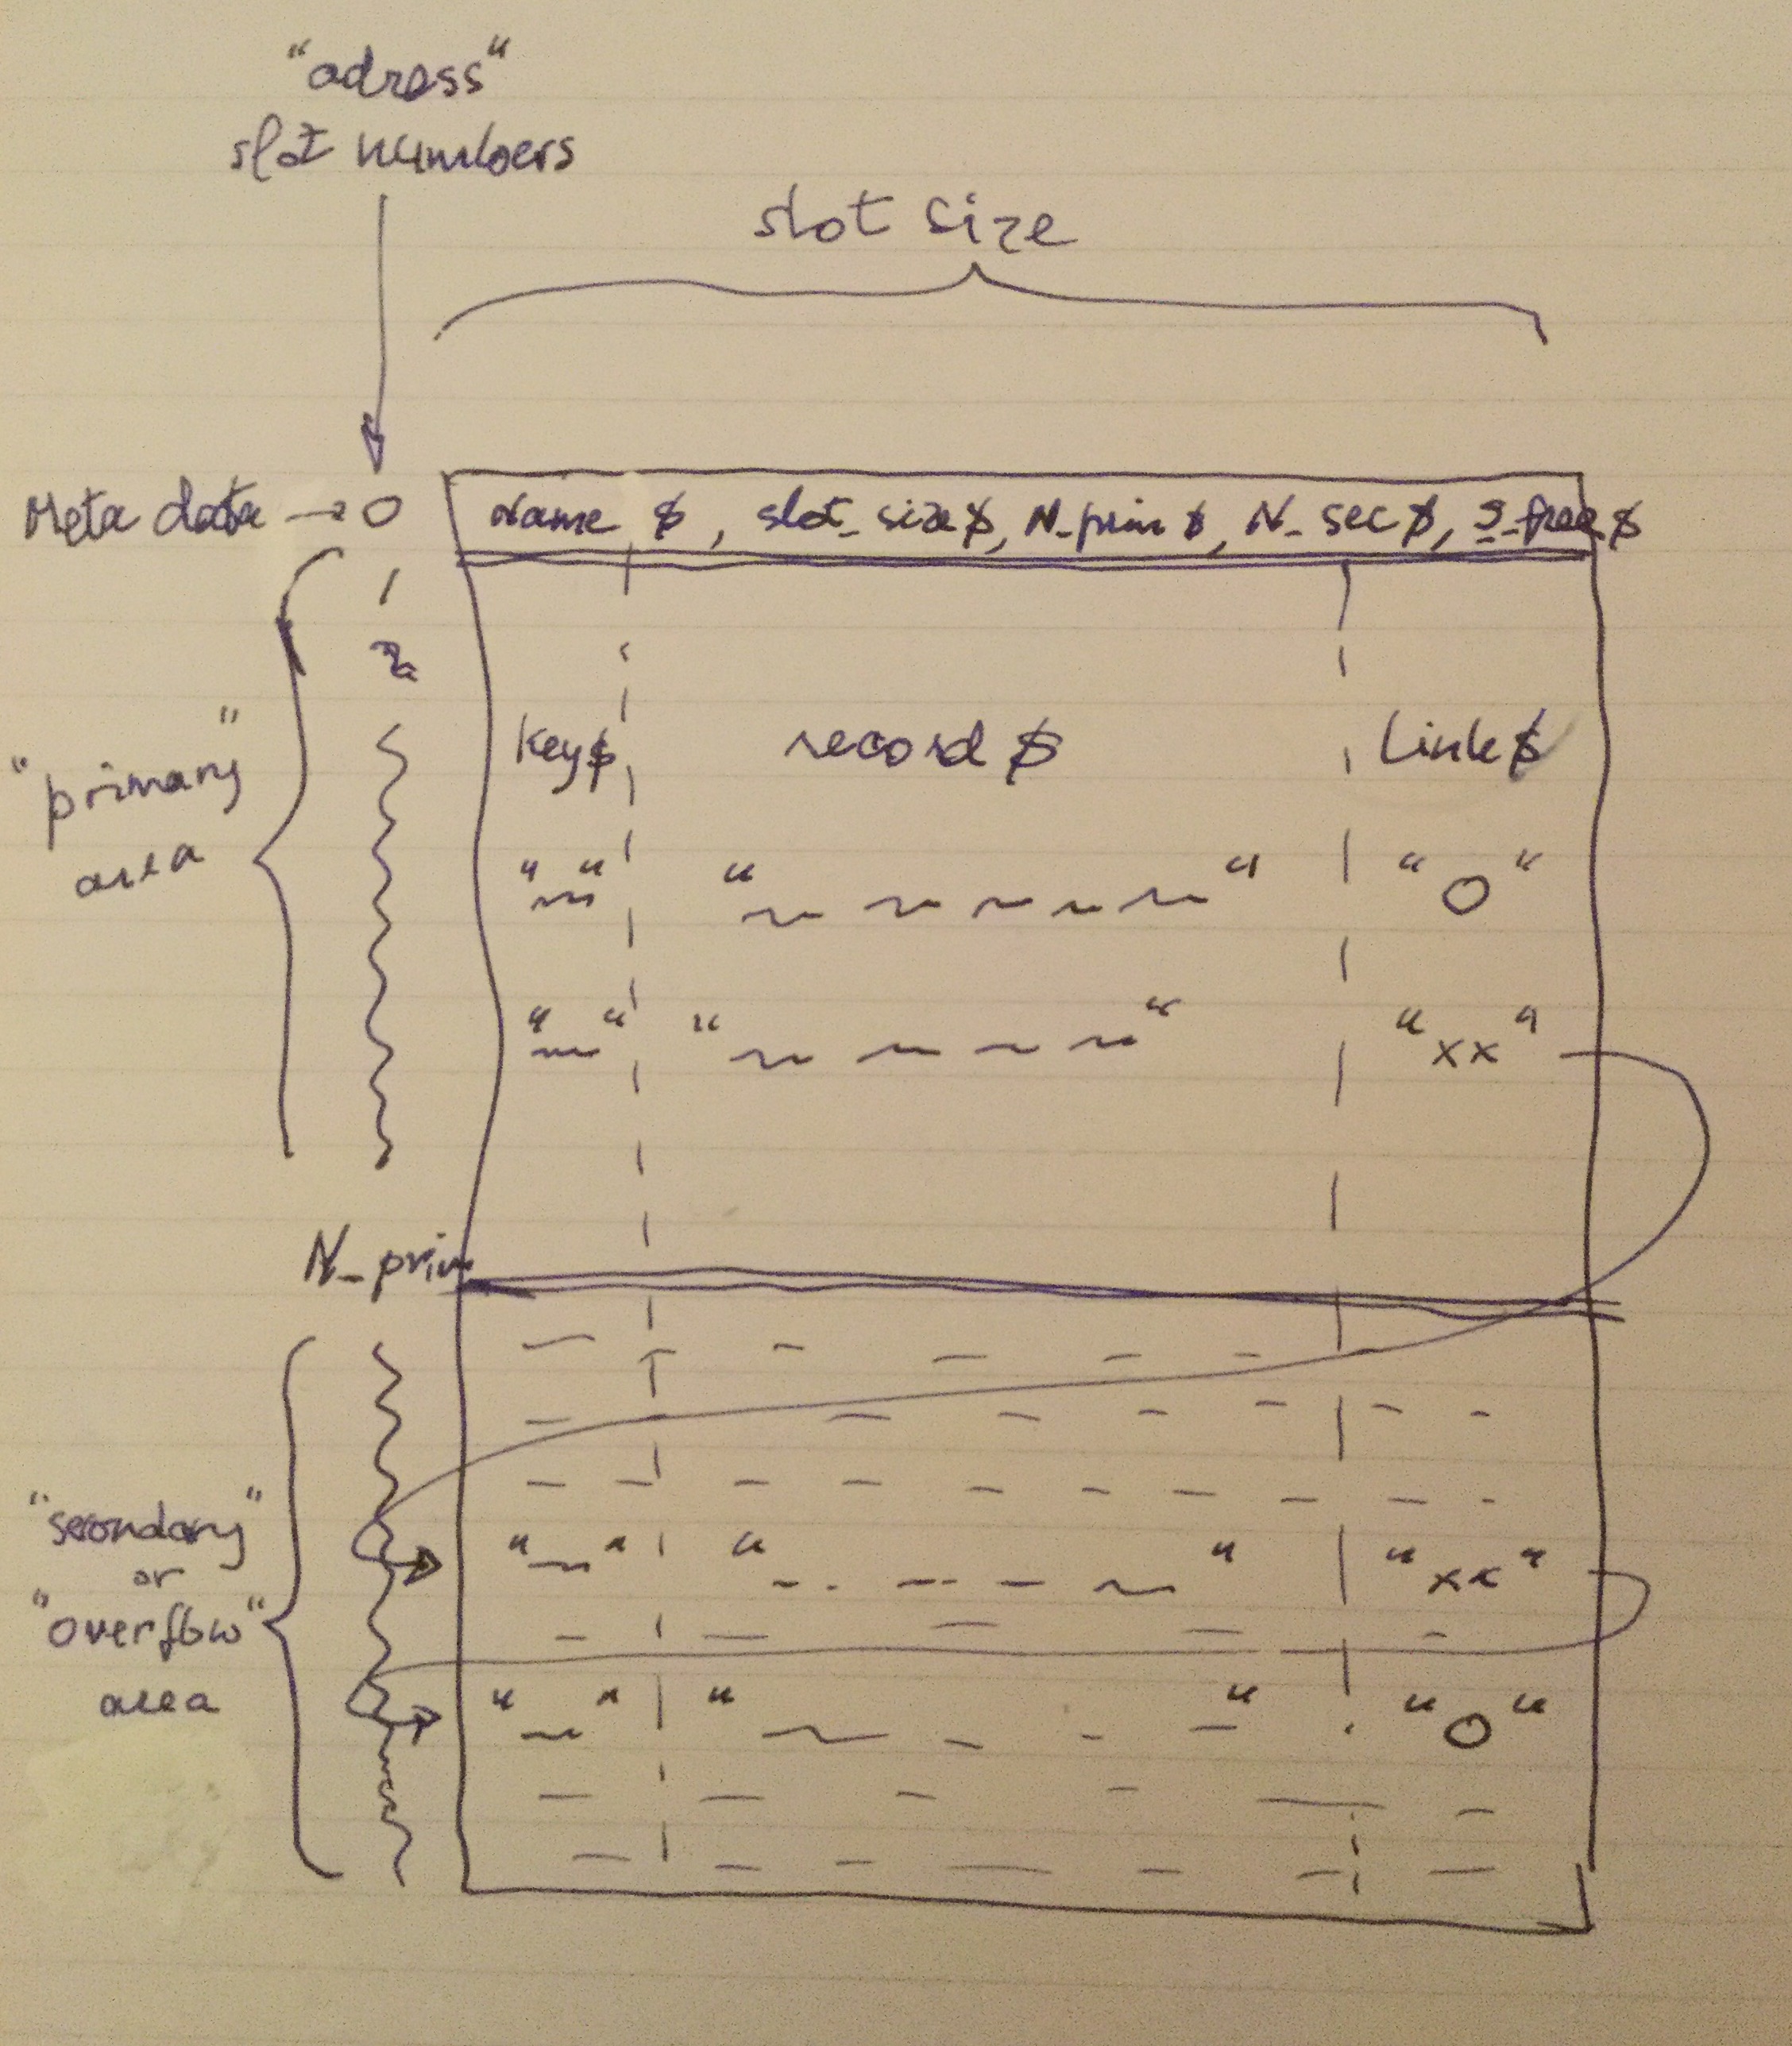 "adress"
slot numbers
slot size
Meta data → 0 Name $, slot_size$, N_prim $, N_sec$, s_free$
1
2
"primary"
area
key$ record $ Link$
"~" "~ ~ ~ ~ ~" "0"
"~" "~ ~ ~ ~" "xx"
N_prim
"secondary"
or
"overflow"
area
"~" "- - - ~" "xx"
"~" "~ - - -" "0"